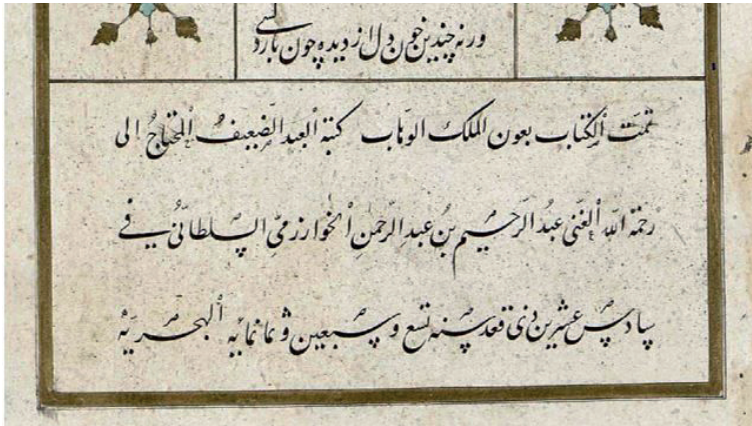 ورنه چندین خون دل از دیده چون باردکسی
تمت الکتاب بعون الملک الوهاب کتبه العبد الضعیف المحتاج الی
رحمة الله الغنی عبد الرحیم بن عبد الرحمن الخوارزمی السلطانی فی
سادس عشرین ذی قعده سنه تسع و سبعین و ثمانمائه الهجریه